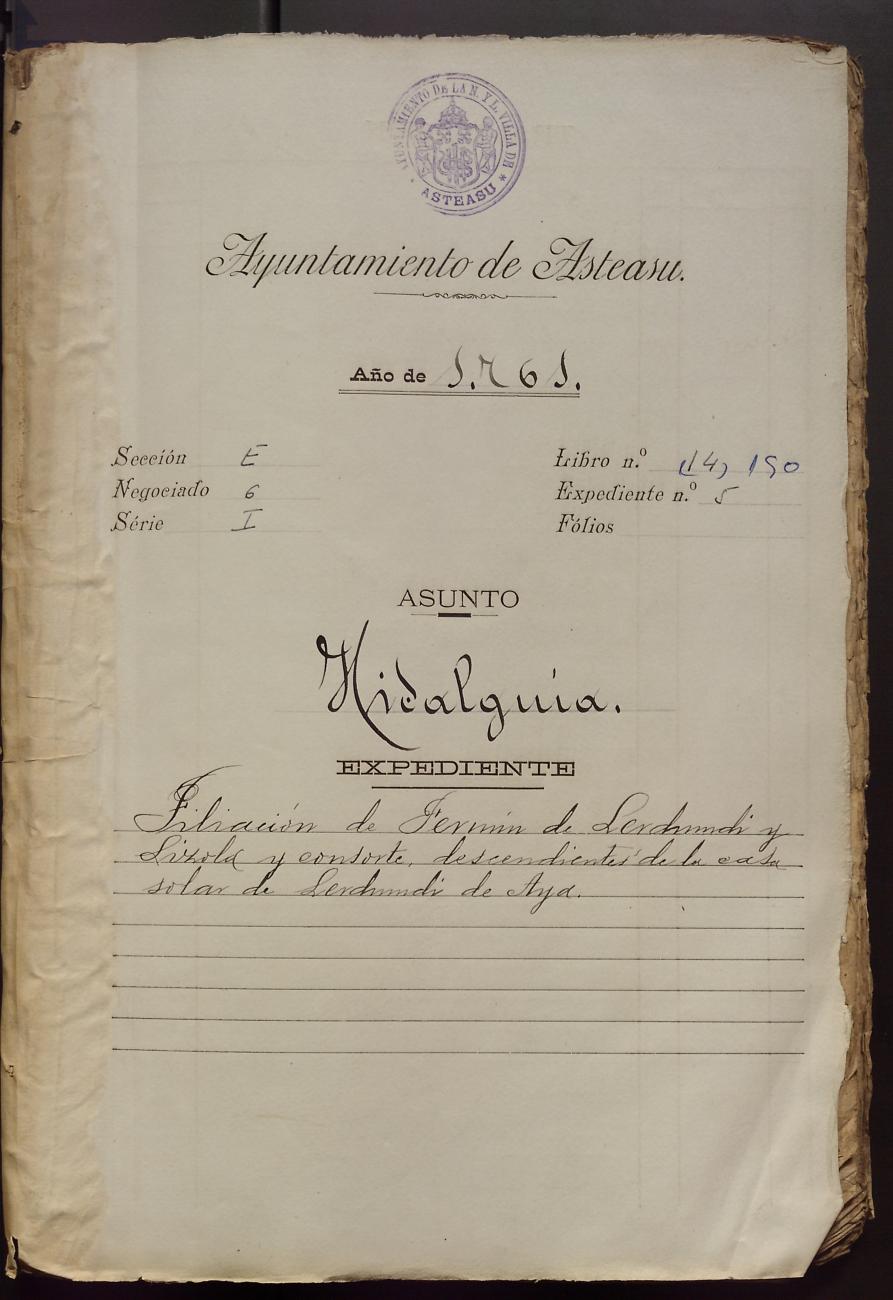 AYUNTAMIENTO DE LA N. Y L. VILLA DE
* ASTEASU *
Ayuntamiento de Asteasu.
Año de 1.761.
Sección E
Negociado 6
Série I
Libro n.º (14) 190
Expediente n.º 5
Fólios
ASUNTO
Hidalguía.
EXPEDIENTE
Filiación de Fermin de Lerchundi y
Lizola y consorte, descendientes de la casa
solar de Lerchundi de Aya.